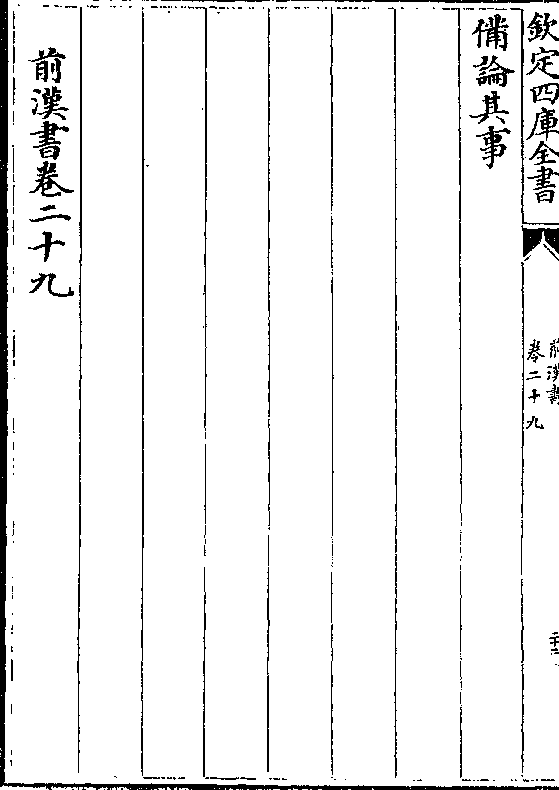 欽定四庫全書
前漢書
卷二十九
備論其事
前漢書卷二十九